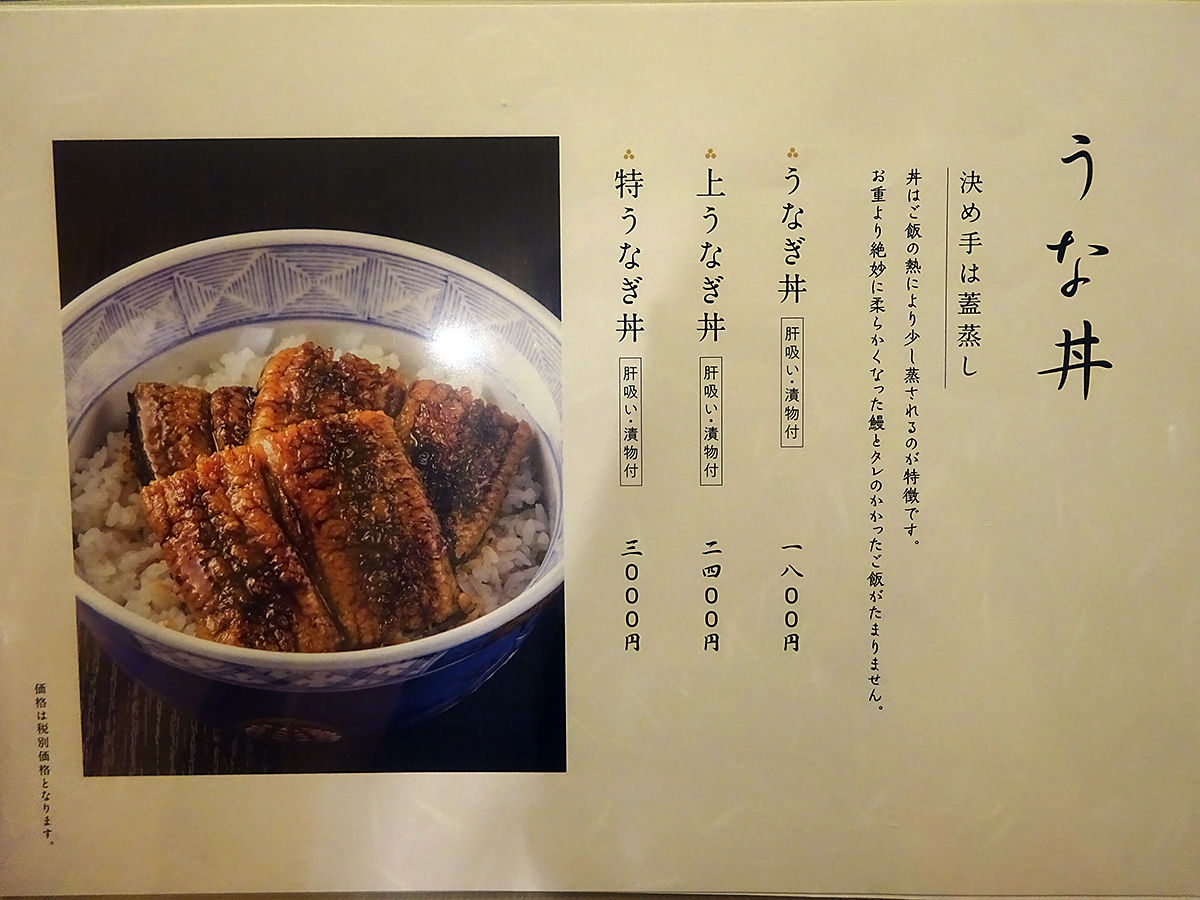 うな丼
決め手は蓋蒸し
丼はご飯の熱により少し蒸されるのが特徴です。
お重より絶妙に柔らかくなった鰻とタレのかかったご飯がたまりません。
うなぎ丼 肝吸い・漬物付 一八〇〇円
上うなぎ丼 肝吸い・漬物付 二四〇〇円
特うなぎ丼 肝吸い・漬物付 三〇〇〇円
価格は税別価格となります。